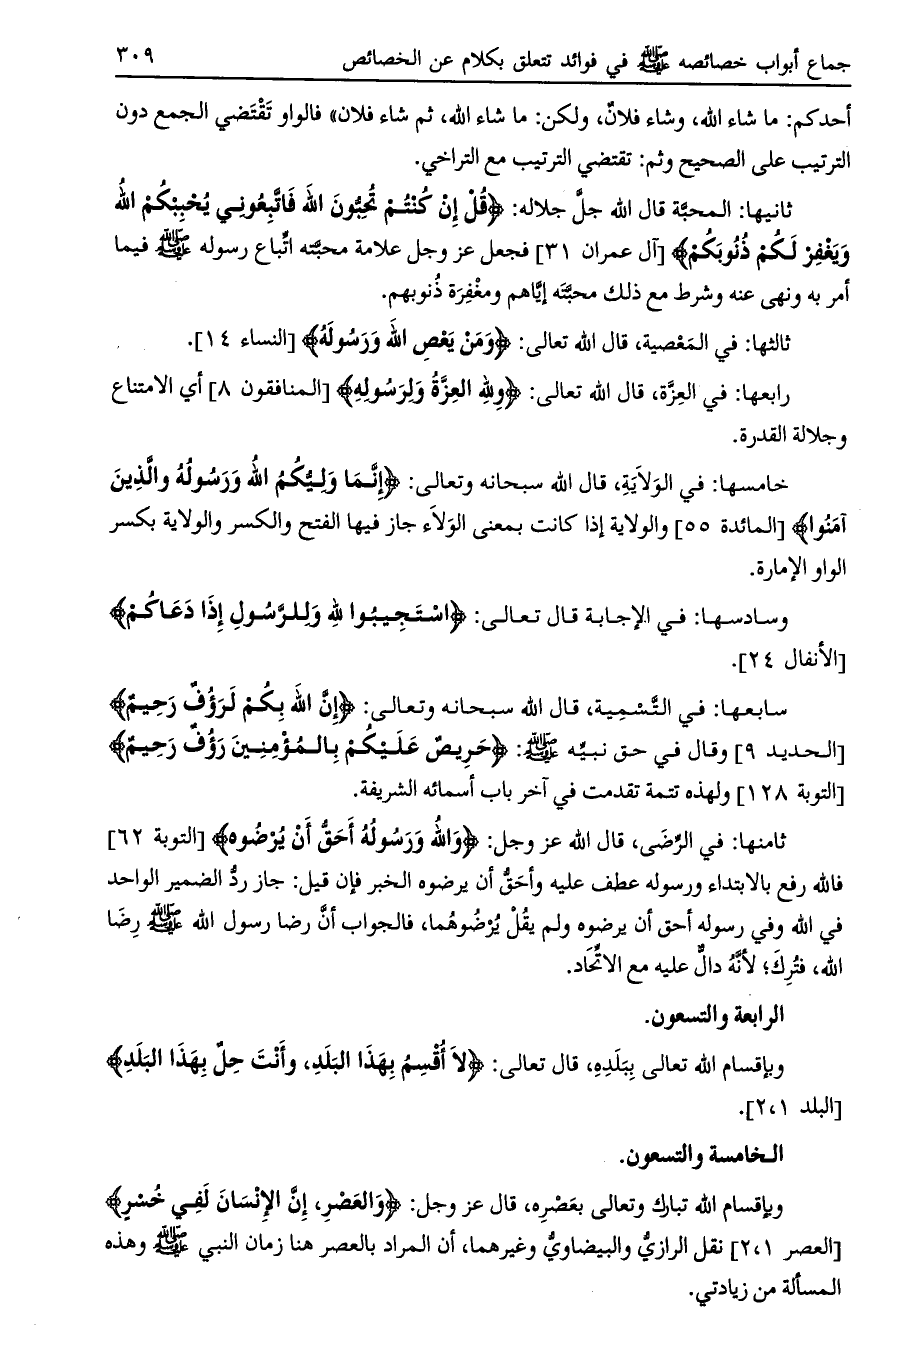 جماع أبواب خصائصه ﷺ في فوائد تتعلق بكلام عن الخصائص ٣٠٩
أحدكم: ما شاء الله، وشاء فلانٌ، ولكن: ما شاء الله، ثم شاء فلان» فالواو تَقْتَضي الجمع دون
الترتيب على الصحيح وثم: تقتضي الترتيب مع التراخي.
ثانيها: المحبَّة قال الله جلَّ جلاله: ﴿قُلْ إِنْ كُنْتُمْ تُحِبُّونَ اللهَ فَاتَّبِعُونِي يُحْبِبْكُمْ اللهُ
وَيَغْفِرْ لَكُمْ ذُنُوبَكُمْ﴾ [آل عمران ٣١] فجعل عز وجل علامة محبَّته اتِّباع رسوله ﷺ فيما
أمر به ونهى عنه وشرط مع ذلك محبَّتَه إيَّاهم ومغْفِرَة ذُنوبهم.
ثالثها: في المَعْصية، قال الله تعالى: ﴿وَمَنْ يَعْصِ اللهَ وَرَسُولَهُ﴾ [النساء ١٤].
رابعها: في العِزَّة، قال الله تعالى: ﴿وللهِ العِزَّةُ وَلِرَسُولِهِ﴾ [المنافقون ٨] أي الامتناع
وجلالة القدرة.
خامسها: في الوَلاَيَةِ، قال الله سبحانه وتعالى: ﴿إِنَّمَا وَلِيُّكُمُ اللهُ وَرَسُولُهُ والَّذِينَ
آمَنُوا﴾ [المائدة ٥٥] والولاية إذا كانت بمعنى الوَلاَء جاز فيها الفتح والكسر والولاية بكسر
الواو الإمارة.
وسادسها: في الإجابة قال تعالى: ﴿اسْتَجِيبُوا للهِ وَلِلرَّسُولِ إِذَا دَعَاكُمْ﴾
[الأنفال ٢٤].
سابعها: في التَّسْمِية، قال الله سبحانه وتعالى: ﴿إِنَّ اللهَ بِكُمْ لَرَؤُفٌ رَحِيمٌ﴾
[الحديد ٩] وقال في حق نبيِّه ﷺ: ﴿حَرِيصٌ عَلَيْكُمْ بِالمُؤْمِنِينَ رَؤُفٌ رَحِيمٌ﴾
[التوبة ١٢٨] ولهذه تتمة تقدمت في آخر باب أسمائه الشريفة.
ثامنها: في الرِّضَى، قال الله عز وجل: ﴿وَاللهُ وَرَسُولُهُ أَحَقُّ أَنْ يُرْضُوه﴾ [التوبة ٦٢]
فالله رفع بالابتداء ورسوله عطف عليه وأحَقُّ أن يرضوه الخبر فإن قيل: جاز ردُّ الضمير الواحد
في الله وفي رسوله أحق أن يرضوه ولم يقُلْ يُرْضُوهُما، فالجواب أنَّ رضا رسول الله ﷺ رِضَا
الله، فتُرِكَ؛ لأنَّهُ دالٌّ عليه مع الاتِّحَاد.
الرابعة والتسعون.
وبإقسام الله تعالى بِبَلَدِهِ، قال تعالى: ﴿لاَ أُقْسِمُ بِهَذَا البَلَدِ، وأَنْتَ حِلٌّ بِهَذَا البَلَدِ﴾
[البلد ٢،١].
الخامسة والتسعون.
وبإقسام الله تبارك وتعالى بعَصْرِه، قال عز وجل: ﴿وَالعَصْرِ، إِنَّ الإِنْسَانَ لَفِي خُسْرٍ﴾
[العصر ٢،١] نقل الرازيُّ والبيضاويُّ وغيرهما، أن المراد بالعصر هنا زمان النبي ﷺ وهذه
المسألة من زيادتي.